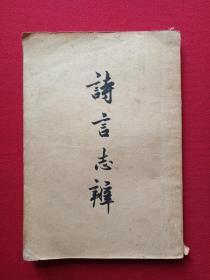 詩言志辨